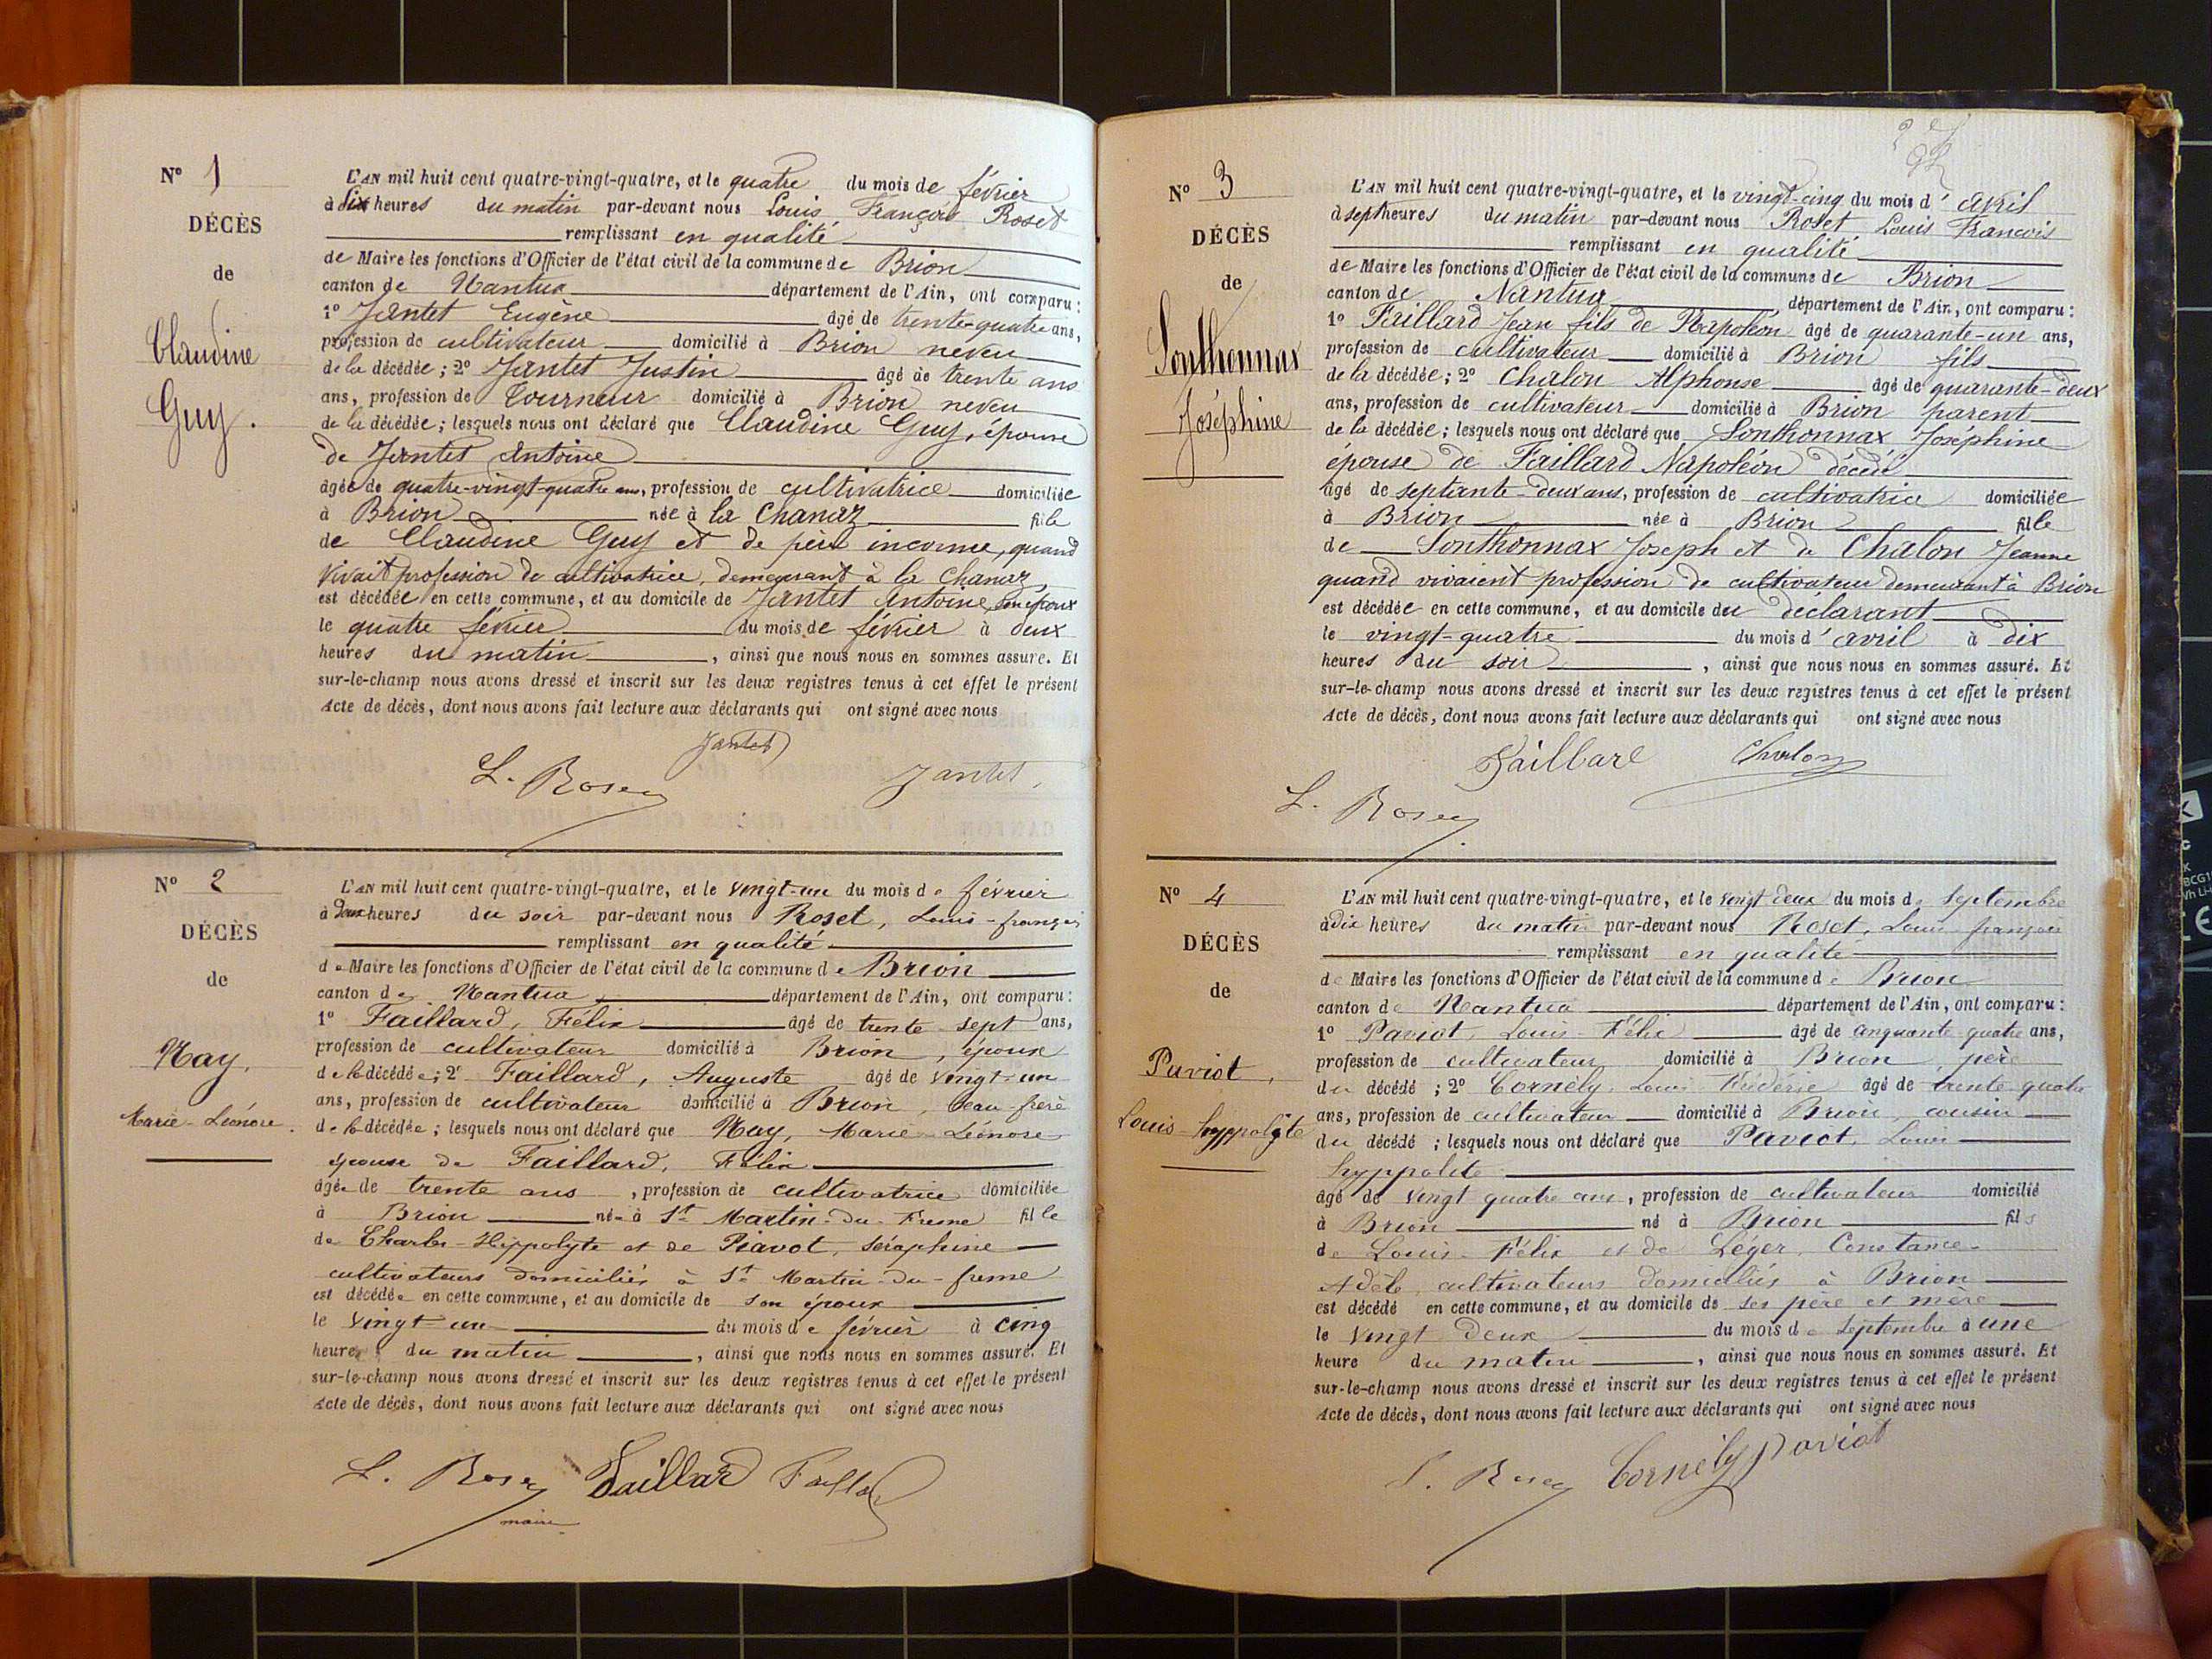 N° 1
DÉCÈS
de
Claudine
Guy.
L'AN mil huit cent quatre-vingt-quatre, et le quatre du mois de février
à dix heures du matin par-devant nous Louis François Roset
remplissant en qualité
de Maire les fonctions d'Officier de l'état civil de la commune de Brion
canton de Nantua département de l'Ain, ont comparu :
1° Jantet Eugène âgé de trente-quatre ans,
profession de cultivateur domicilié à Brion neveu
de la décédée ; 2° Jantet Justin âgé de trente ans
ans, profession de Tourneur domicilié à Brion neveu
de la décédée ; lesquels nous ont déclaré que Claudine Guy, épouse
de Jantet Antoine
âgée de quatre-vingt-quatre ans, profession de cultivatrice domiciliée
à Brion née à la Chanaz fille
de Claudine Guy et de père inconnu, quand
vivait profession de cultivatrice, demeurant à la Chanaz,
est décédée en cette commune, et au domicile de Jantet Antoine, son époux
le quatre février du mois de février à deux
heures du matin , ainsi que nous nous en sommes assuré. Et
sur-le-champ nous avons dressé et inscrit sur les deux registres tenus à cet effet le présent
Acte de décès, dont nous avons fait lecture aux déclarants qui ont signé avec nous
Jantet
L. Roset Jantet
N° 2
DÉCÈS
de
Nay,
Marie-Léonore.
L'AN mil huit cent quatre-vingt-quatre, et le vingt-un du mois de février
à deux heures du soir par-devant nous Roset, Louis-françois
remplissant en qualité
de Maire les fonctions d'Officier de l'état civil de la commune de Brion
canton de Nantua département de l'Ain, ont comparu :
1° Faillard, Félix âgé de trente sept ans,
profession de cultivateur domicilié à Brion, époux
de la décédée ; 2° Faillard, Auguste âgé de vingt-un
ans, profession de cultivateur domicilié à Brion, beau-frère
de la décédée ; lesquels nous ont déclaré que Nay, Marie Léonore
épouse de Faillard, Félix
âgée de trente ans , profession de cultivatrice domiciliée
à Brion née à St Martin-du-Fresne fille
de Charles-Hippolyte et de Piavot, séraphine
cultivateurs domiciliés à St Martin-du-fresne
est décédée en cette commune, et au domicile de son époux
le vingt-un du mois de février à cinq
heures du matin , ainsi que nous nous en sommes assuré. Et
sur-le-champ nous avons dressé et inscrit sur les deux registres tenus à cet effet le présent
Acte de décès, dont nous avons fait lecture aux déclarants qui ont signé avec nous
L. Roset Faillard Faillard
maire
N° 3
DÉCÈS
de
Sonthonnax
Joséphine
L'AN mil huit cent quatre-vingt-quatre, et le vingt-cinq du mois d'avril
à sept heures du matin par-devant nous Roset Louis François
remplissant en qualité
de Maire les fonctions d'Officier de l'état civil de la commune de Brion
canton de Nantua département de l'Ain, ont comparu :
1° Faillard Jean fils de Napoléon âgé de quarante-un ans,
profession de cultivateur domicilié à Brion fils
de la décédée ; 2° Chalon Alphonse âgé de quarante-deux
ans, profession de cultivateur domicilié à Brion parent
de la décédée ; lesquels nous ont déclaré que Sonthonnax Joséphine
épouse de Faillard Napoléon décédé
âgé de septante-deux ans, profession de cultivatrice domiciliée
à Brion née à Brion fille
de Sonthonnax Joseph et de Chalon Jeanne
quand vivaient profession de cultivateur demeurant à Brion
est décédée en cette commune, et au domicile du déclarant
le vingt-quatre du mois d'avril à dix
heures du soir , ainsi que nous nous en sommes assuré. Et
sur-le-champ nous avons dressé et inscrit sur les deux registres tenus à cet effet le présent
Acte de décès, dont nous avons fait lecture aux déclarants qui ont signé avec nous
Faillard Chalon
L. Roset
N° 4
DÉCÈS
de
Paviot,
Louis-hyppolyte
L'AN mil huit cent quatre-vingt-quatre, et le vingt deux du mois de septembre
à dix heures du matin par-devant nous Roset, Louis françois
remplissant en qualité
de Maire les fonctions d'Officier de l'état civil de la commune de Brion
canton de Nantua département de l'Ain, ont comparu :
1° Paviot, Louis-Félix âgé de cinquante quatre ans,
profession de cultivateur domicilié à Brion, père
du décédé ; 2° Cornély Louis Frédéric âgé de trente quatre
ans, profession de cultivateur domicilié à Brion, cousin
du décédé ; lesquels nous ont déclaré que Paviot, Louis
hyppolite
âgé de vingt quatre ans, profession de cultivateur domicilié
à Brion né à Brion fils
de Louis-Félix et de Léger, Constance-
Adèle, cultivateurs domiciliés à Brion
est décédé en cette commune, et au domicile de ses père et mère
le vingt deux du mois de septembre à une
heure du matin , ainsi que nous nous en sommes assuré. Et
sur-le-champ nous avons dressé et inscrit sur les deux registres tenus à cet effet le présent
Acte de décès, dont nous avons fait lecture aux déclarants qui ont signé avec nous
L. Roset Cornély Paviot